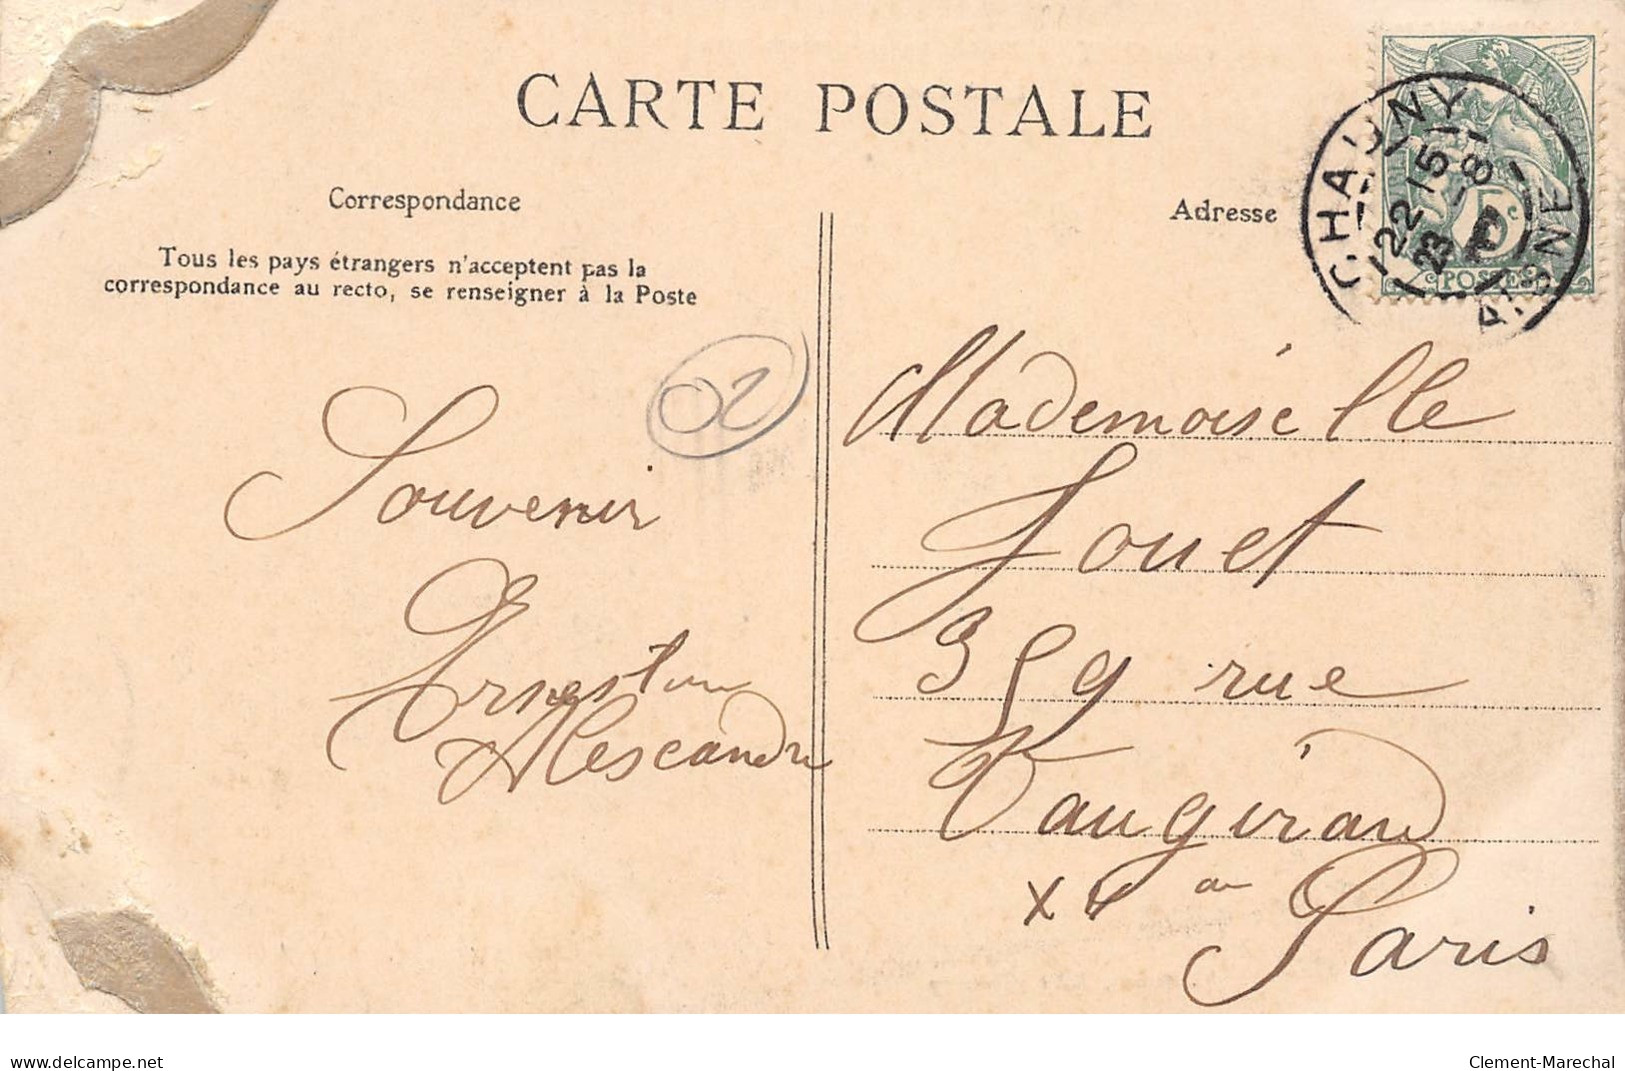 CARTE POSTALE
Correspondance
Tous les pays étrangers n'acceptent pas la
correspondance au recto, se renseigner à la Poste
02
Souvenir
Ernest
Alescandre
Adresse
CHAUNY
22 15
23
AISNE
5c
POSTES
Mademoiselle
Jouet
359 rue
Vaugirard
XV
Paris
www.delcampe.net
Clement-Marechal